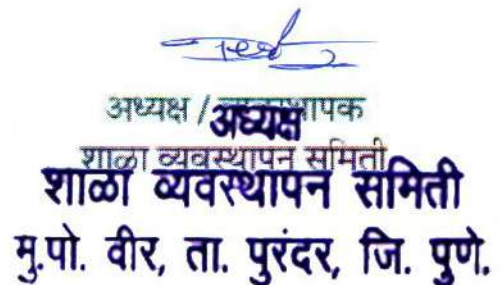 अध्यक्ष /
अध्यक्ष
शाळा व्यवस्थापन समिती
शाळा व्यवस्थापन समिती
मु.पो. वीर, ता. पुरंदर, जि. पुणे.